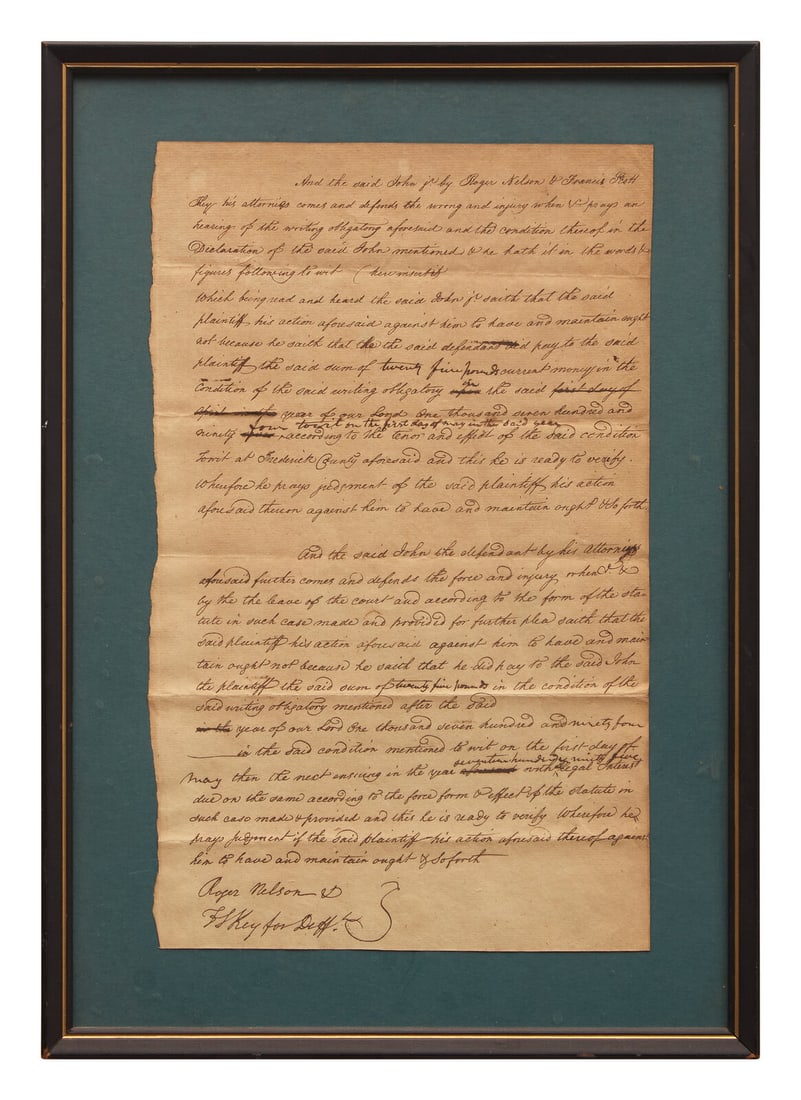 And the said John jr by Roger Nelson & Francis Scott
Key his attornies comes and defends the wrong and injury when &c prays an
hearing of the writing obligatory aforesaid and the condition thereof in the
Declaration of the said John mentioned & he hath it in the words &
figures following to wit (here insert it
Which being read and heard the said John jr saith that the said
plaintiff his action aforesaid against him to have and maintain ought
not because he saith that the the said defendant did pay to the said
plaintiff the said sum of twenty five pounds current money in the
condition of the said writing obligatory upon in the said first day of
year of our Lord One thousand seven hundred and
four to wit on the first day of may in the said year
ninety according to the tenor and effect of the said condition
Towit at Frederick County aforesaid and this he is ready to verify.
Wherefore he prays judgment if the said plaintiff his action
aforesaid thereon against him to have and maintain ought & So forth.
And the said John the defendant by his attornies
aforesaid further comes and defends the force and injury when & &
by the the leave of the court and according to the form of the sta-
tute in such case made and provided for further plea saith that the
said plaintiff his action aforesaid against him to have and main
tain ought not because he saith that he did pay to the said John
the plaintiff the said sum of twenty five pounds in the condition of the
said writing obligatory mentioned after the said
in the year of our Lord One thousand seven hundred and ninety four
in the said condition mentioned to wit on the first day of
seventeen hundred & ninety five
may then the next ensuing in the year aforesaid with legal Interest
due on the same according to the force form & effect of the statute in
such case made & provided and this he is ready to verify Wherefore he
prays judgment if the said plaintiff his action aforesaid thereof against
him to have and maintain ought & So forth
Roger Nelson &
F S Key for Deft.